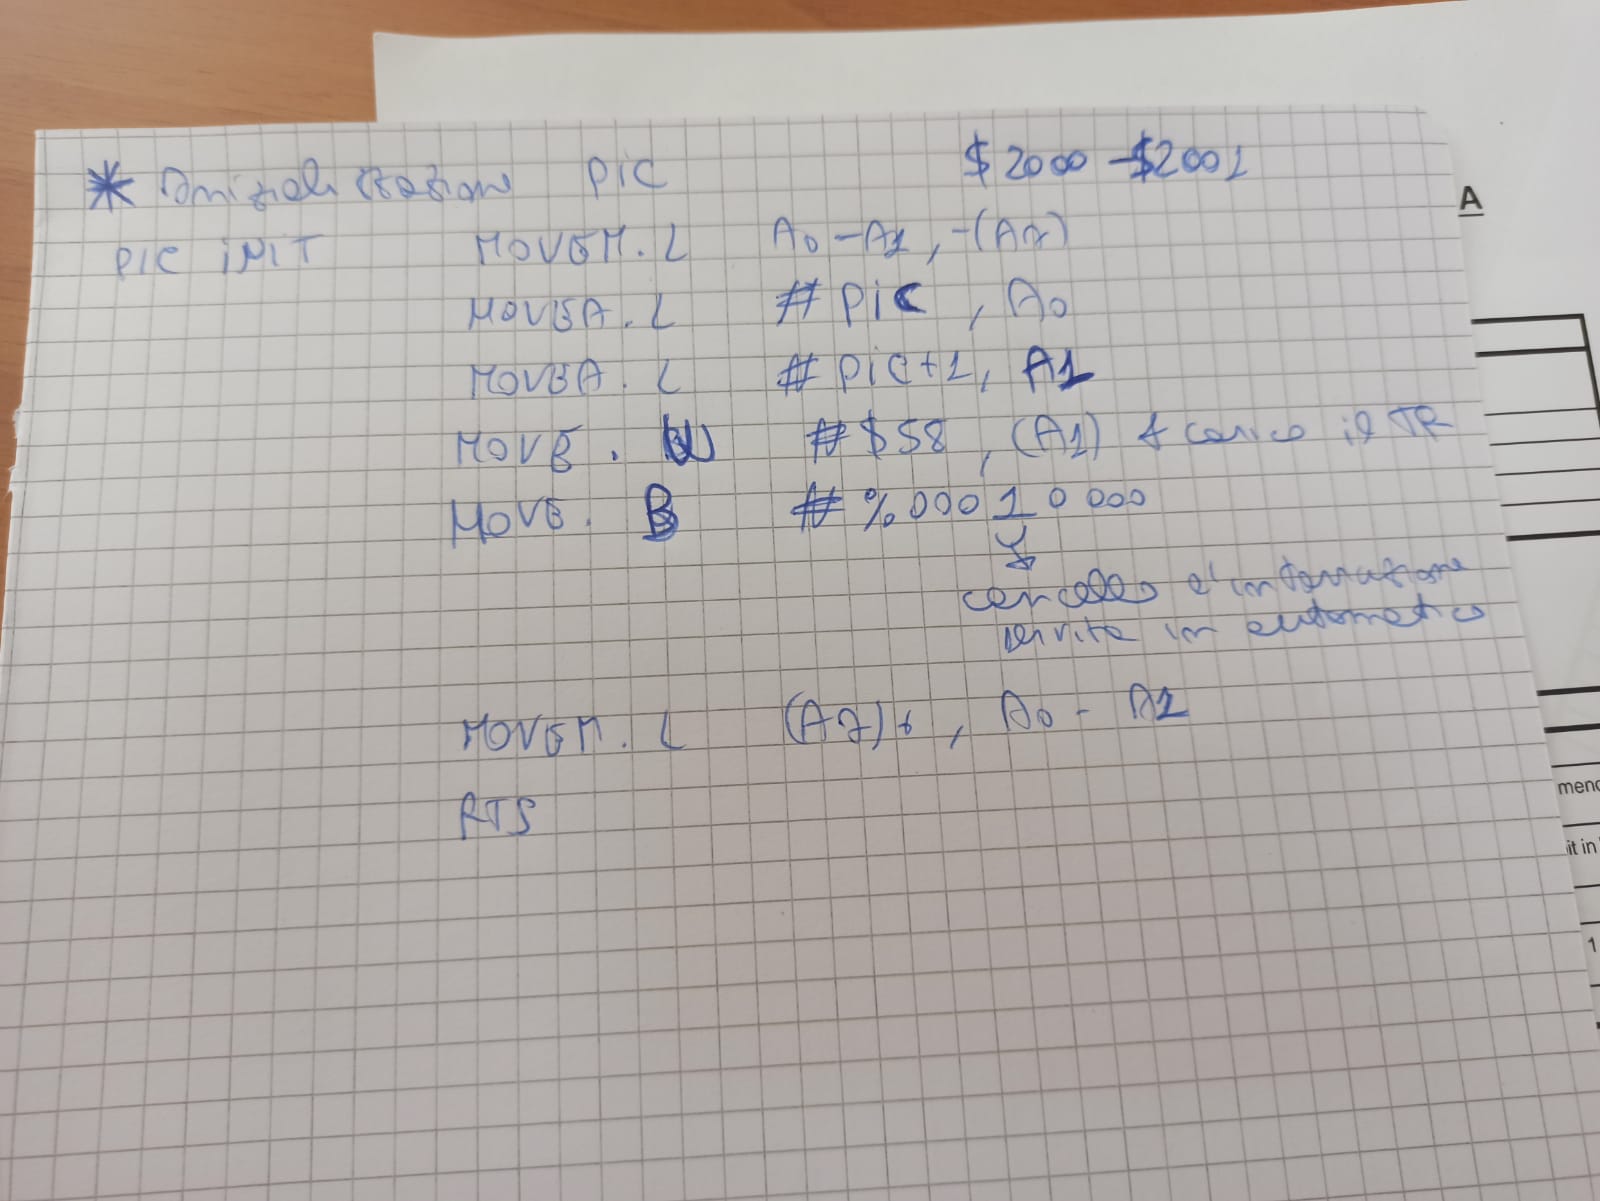 * Inizializzazione PIC $2000 - $2001
PIC INIT MOVEM.L A0-A1, -(A7)
MOVEA.L # PIC, A0
MOVEA.L # PIC+1, A1
MOVE.W # $58, (A1) * carico il TR
MOVE.B # %00010000
cancello l'interruzione
servita in automatico
MOVEM.L (A7)+, A0 - A1
RTS
A
mend
it in
1